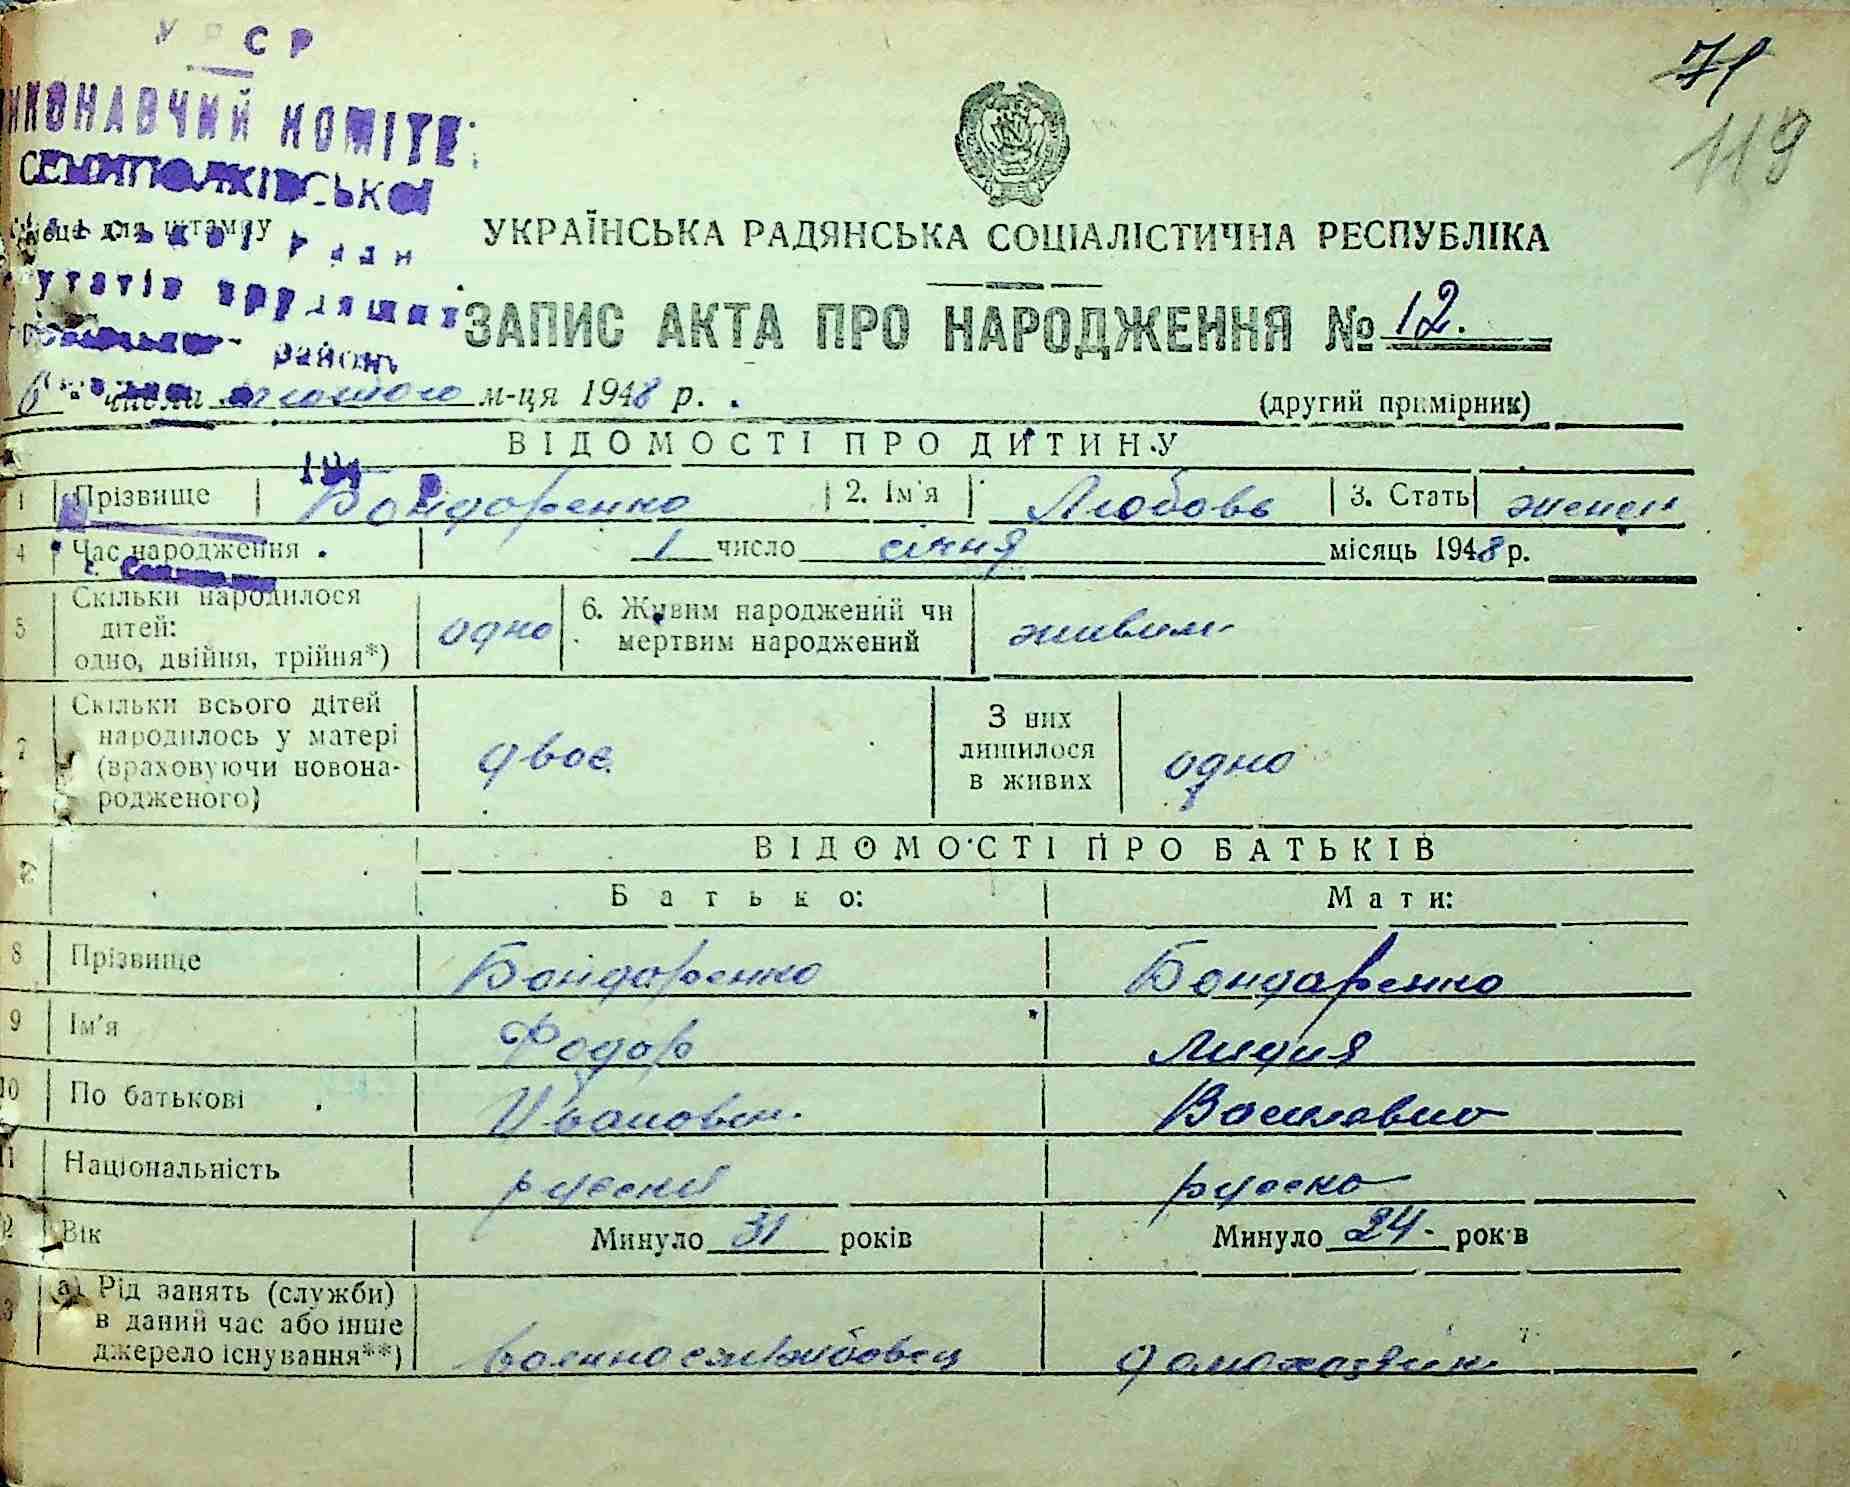 У Р С Р
71
ИКОНАВЧИЙ КОМІТЕ
119
СЕМИПОЛКІВСЬКОЇ
місце для штампу
ради
УКРАЇНСЬКА РАДЯНСЬКА СОЦІАЛІСТИЧНА РЕСПУБЛІКА
утатів трудящих
ЗАПИС АКТА ПРО НАРОДЖЕННЯ № 12.
район
6 " числа лютого м-ця 1948 р.
(другий примірник)
ВІДОМОСТІ ПРО ДИТИНУ
194
1 Прізвище Бондаренко 2. Ім'я Любовь 3. Стать женск
4 Час народження 1 число січня місяць 1948 р.
5 Скільки народилося
дітей:
одно, двійня, трійня*) одно 6. Живим народжений чи
мертвим народжений живим
7 Скільки всього дітей
народилось у матері
(враховуючи новона-
родженого) двоє З них
лишилося
в живих одно
ВІДОМОСТІ ПРО БАТЬКІВ
Батько: Мати:
8 Прізвище Бондаренко Бондаренко
9 Ім'я Фодор Лидия
10 По батькові Иванович Василевна
11 Національність руский руска
2 Вік Минуло 31 років Минуло 24 рок в
3 а) Рід занять (служби)
в даний час або інше
джерело існування**) военнослужбовец домохозяйк